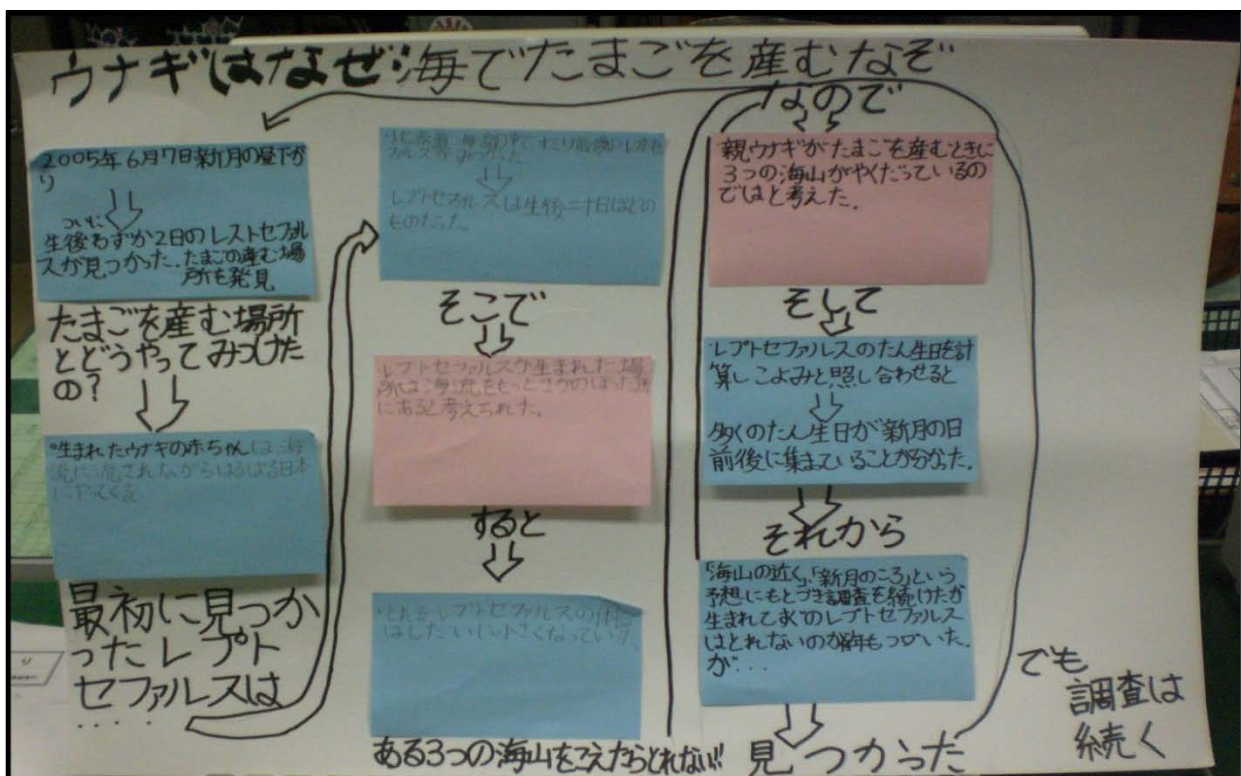 ウナギはなぜ海でたまごを産むなぞ
2005年6月7日新月の昼下が
り
ついに
生後わずか2日のレストセファル
スが見つかった.たまごの産む場
所を発見
たまごを産む場所
とどうやってみつけた
の?
・生まれたウナギの赤ちゃんは海
流に流されながらはるばる日本
にやってくる
最初に見つか
ったレプト
セファルスは
.....
レプトセファルスは生後二十日ほどの
ものだった。
そこで
レプトセファルスが生まれた場
所は海流をもっとさかのぼった所
にあると考えられた。
すると
とれるレプトセファルスの体長
はしだいに小さくなっていった
ある3つの海山をこえたらとれない!!
なので
親ウナギがたまごを産むときに
3つの海山がやくだっているの
ではと考えた.
そして
レプトセファルスのたん生日を計
算しこよみと照し合わせると
多くのたん生日が新月の日
前後に集まていることが分かった.
それから
「海山の近く」,「新月のころ」という
予想にもとづき調査を続けたが
生まれてすぐのレプトセファルス
はとれないのが何年もつづいた.
が...
見つかった
でも
調査は
続く